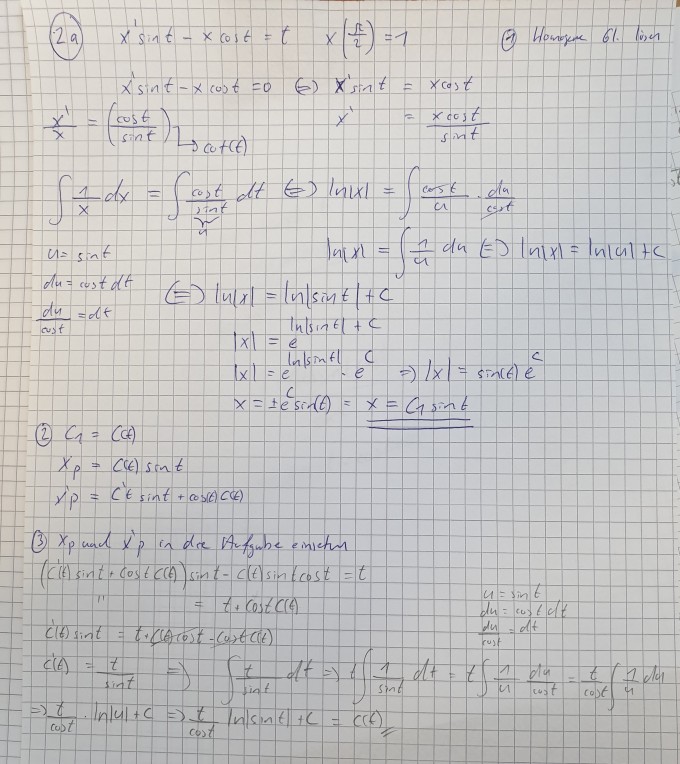 2a) x' sin t - x cos t = t   x(π/2) = 1   ① Homogene Gl. lösen
x' sin t - x cos t = 0 ⇔ x' sin t = x cos t
x'/x = (cos t / sin t) ↳ cot(t)   x' = x cos t / sin t
∫ 1/x dx = ∫ cos t / sin t dt ⇔ ln|x| = ∫ cos t / u · du / cos t
u
u = sin t   ln|x| = ∫ 1/u du ⇔ ln|x| = ln|u| + C
du = cos t dt   ⇔ ln|x| = ln|sin t| + C
du / cos t = dt
|x| = e^(ln|sin t| + C)
|x| = e^(ln|sin t|) · e^C ⇒ |x| = sin(t) e^C
x = ± e^C sin(t) = x = C₁ sin t
② C₁ = C(t)
xp = C(t) sin t
x'p = C't sin t + cos(t) C(t)
③ xp und x'p in die Aufgabe einsetzen
(C'(t) sin t + cos t C(t)) sin t - C(t) sin t cos t = t
" = t + cos t C(t)
C'(t) sin t = t + C(t) cos t - cos t C(t)
u = sin t
du = cos t dt
du / cos t = dt
C'(t) = t / sin t ⇒ ∫ t / sin t dt ⇒ t ∫ 1 / sin t dt = t ∫ 1/u du / cos t = t / cos t ∫ 1/u du
⇒ t / cos t · ln|u| + C ⇒ t / cos t ln|sin t| + C = C(t)